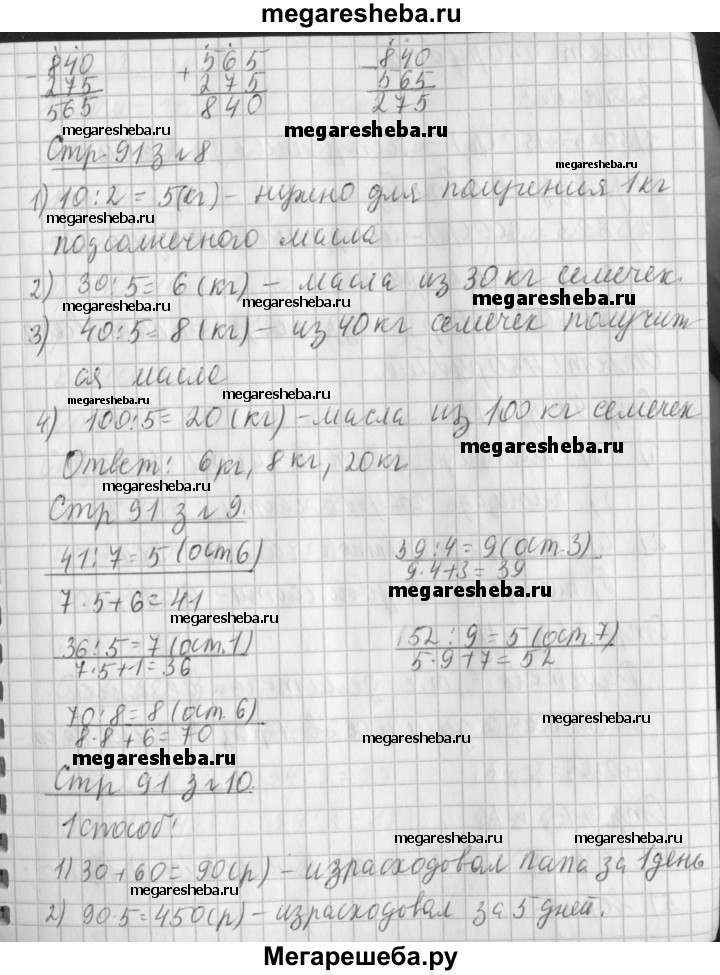 megaresheba.ru
- 840 + 565 - 840
275 275 565
565 840 275
megaresheba.ru megaresheba.ru megaresheba.ru
Стр 91 з № 8
megaresheba.ru
1) 10 : 2 = 5 (кг) – нужно для получения 1 кг
megaresheba.ru megaresheba.ru
подсолнечного масла
2) 30 : 5 = 6 (кг) – масла из 30 кг семечек.
megaresheba.ru megaresheba.ru megaresheba.ru
3) 40 : 5 = 8 (кг) – из 40 кг семечек получит
ся масле
megaresheba.ru megaresheba.ru
4) 100 : 5 = 20 (кг) – масла из 100 кг семечек
megaresheba.ru
Ответ: 6 кг, 8 кг, 20 кг
megaresheba.ru
Стр 91 з № 9.
41 : 7 = 5 (ост. 6) 39 : 4 = 9 (ост. 3)
9 · 4 + 3 = 39
megaresheba.ru
7 · 5 + 6 = 41
megaresheba.ru
36 : 5 = 7 (ост. 1) 52 : 9 = 5 (ост. 7)
7 · 5 + 1 = 36 5 · 9 + 7 = 52
70 : 8 = 8 (ост. 6)
megaresheba.ru
8 · 8 + 6 = 70
megaresheba.ru
megaresheba.ru
Стр 91 з № 10.
1 способ:
megaresheba.ru megaresheba.ru
1) 30 + 60 = 90 (р) – израсходовал папа за 1 день
megaresheba.ru
2) 90 · 5 = 450 (р) – израсходовал за 5 дней.
Мегарешеба.ру